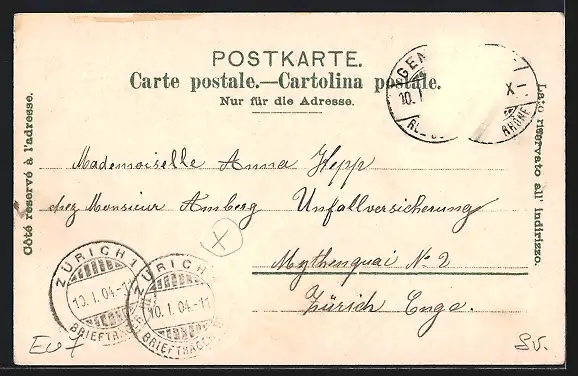 POSTKARTE.
Carte postale.—Cartolina postale.
Nur für die Adresse.
Côté réservé à l'adresse.
Lato riservato all' indirizzo.
GEN
10. I X–
RHONE
Mademoiselle Anna Kepp
chez Monsieur Amberg Unfallversicherung
Mythenquai No 2
Zürich Enge.
ZÜRICH 1
10. I. 04.-11
BRIEFTRÄGER
ZÜRICH
10. I. 04.-11
BRIEFTRÄGER
Sv.